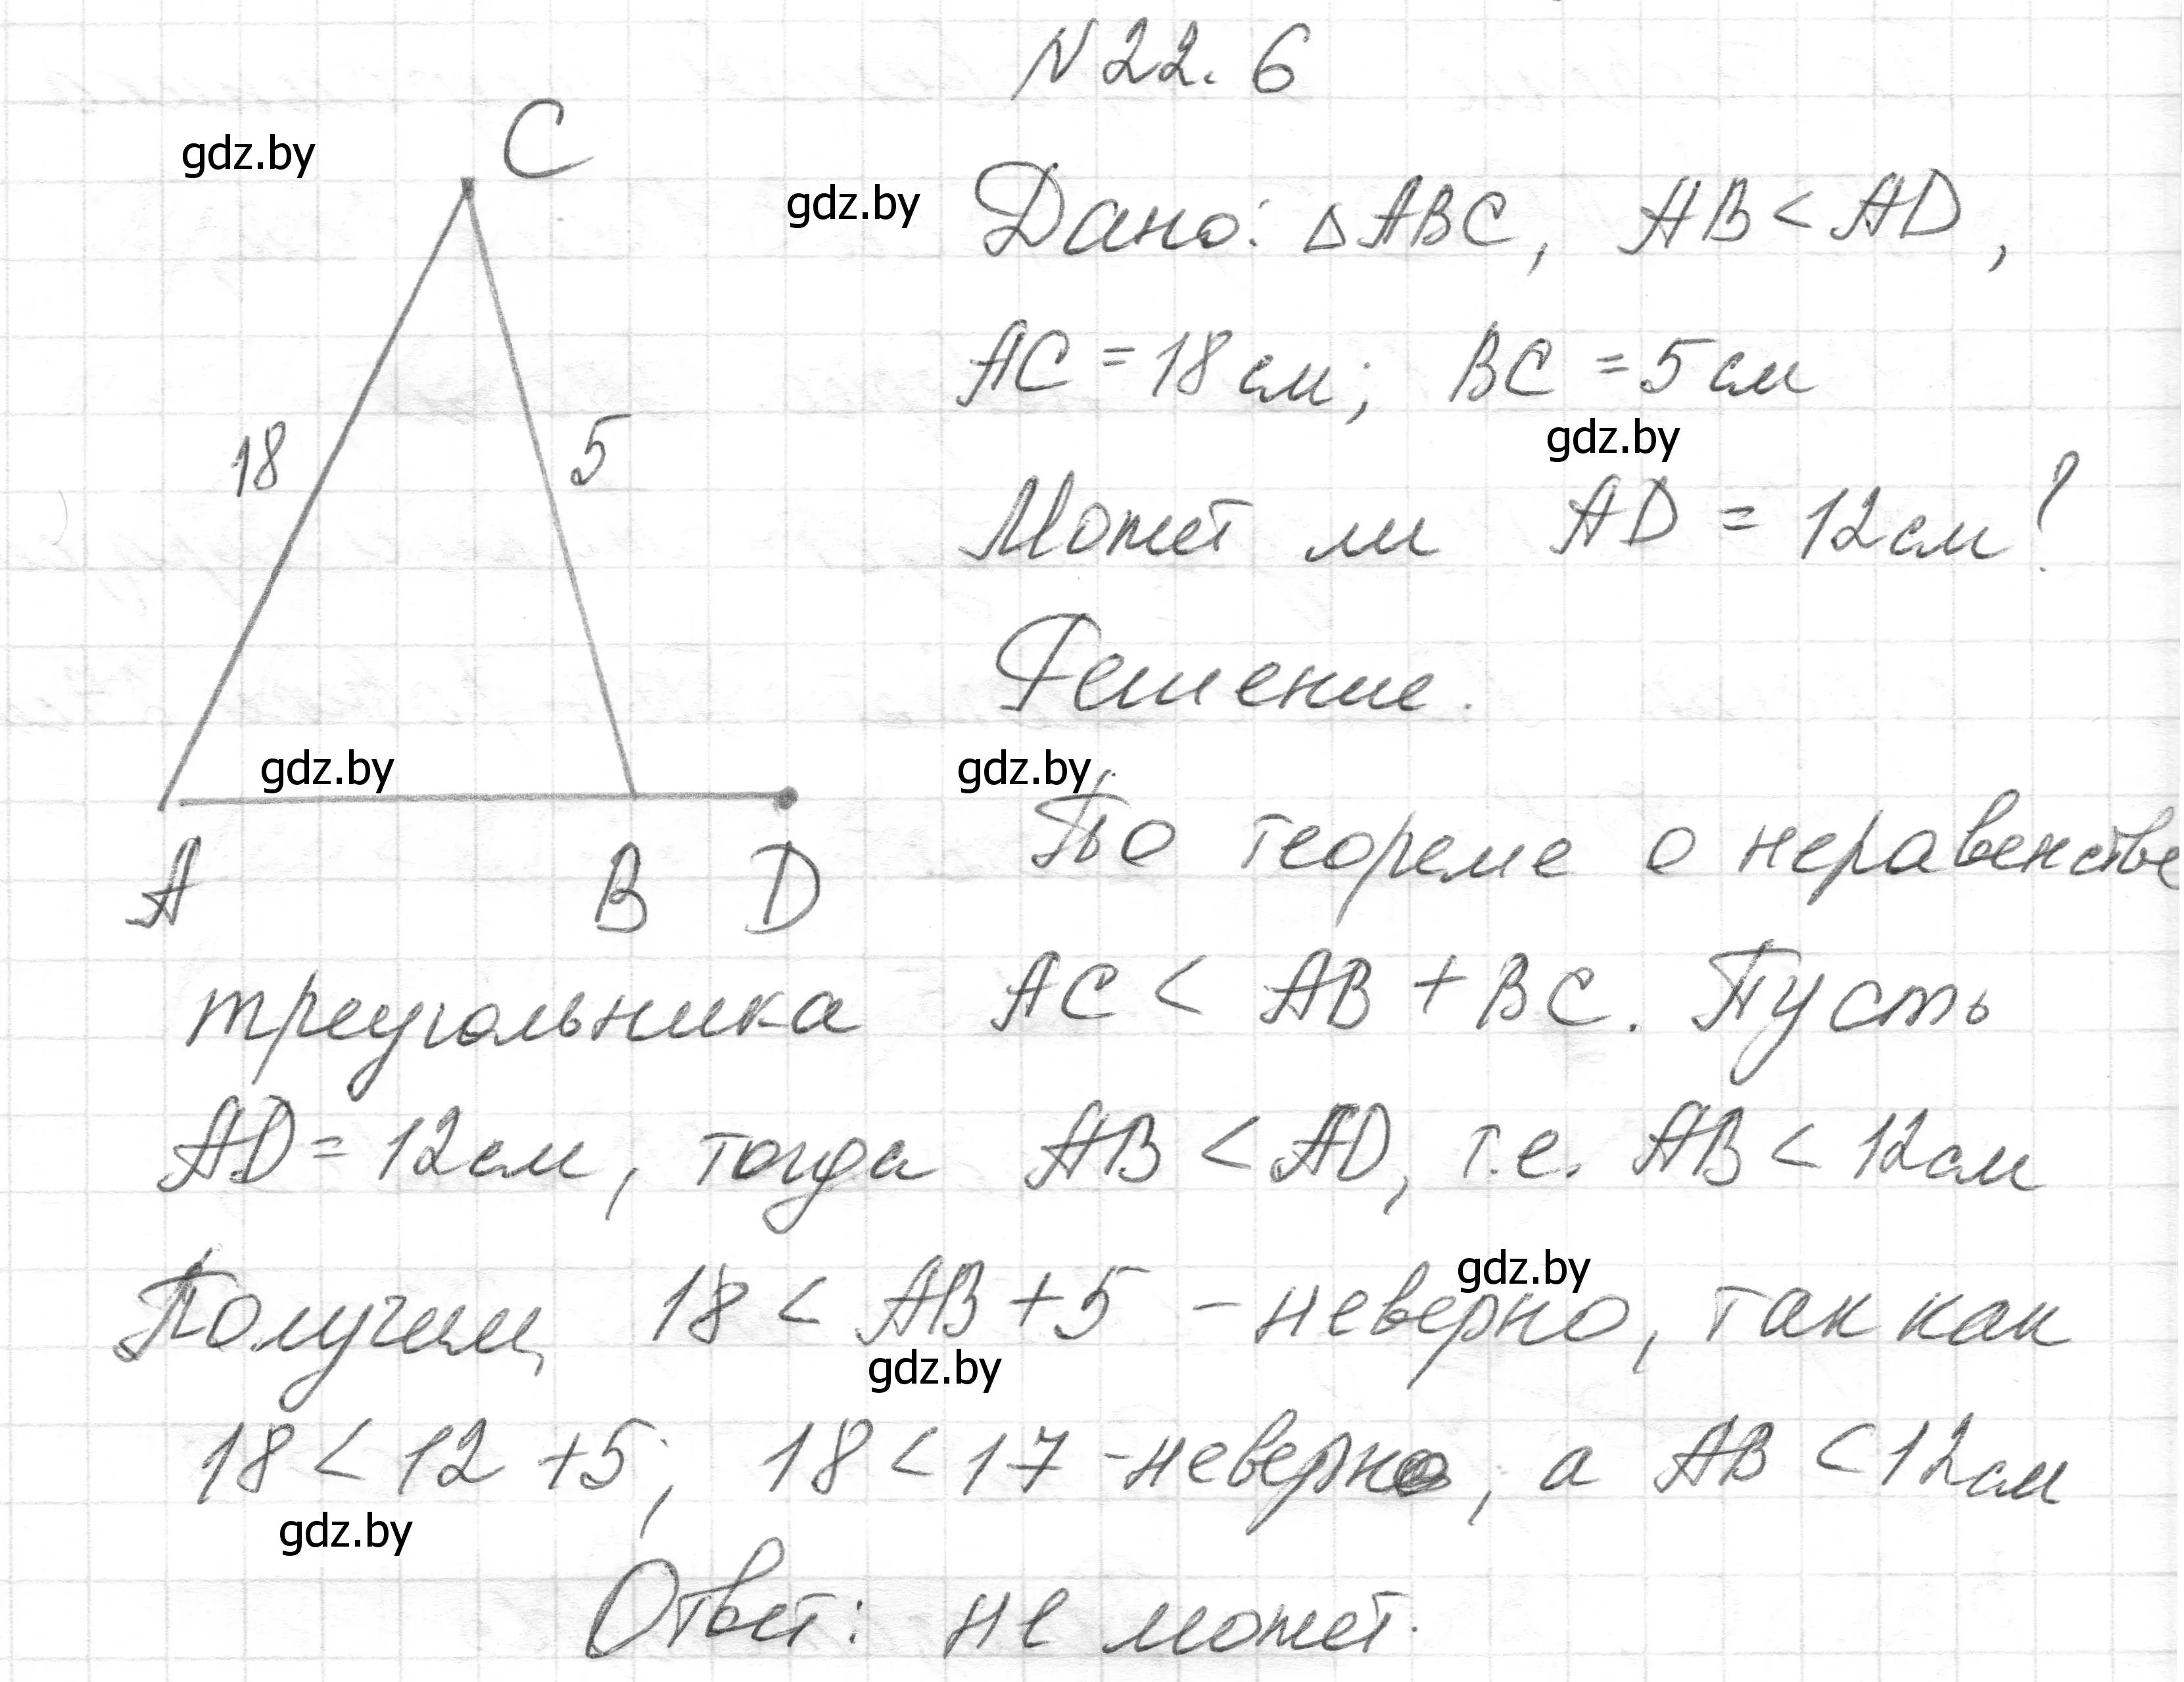 N 22. 6
gdz.by
C
gdz.by
Дано: △ABC, AB < AD,
AC = 18 см; BC = 5 см
gdz.by
18
5
Может ли AD = 12 см?
Решение.
gdz.by
gdz.by
По теореме о неравенстве
A
B
D
треугольника AC < AB + BC. Пусть
AD = 12 см, тогда AB < AD, т.е. AB < 12 см
gdz.by
Получим, 18 < AB + 5 - неверно, так как
gdz.by
18 < 12 + 5; 18 < 17 - неверно, а AB < 12 см
gdz.by
Ответ: не может.